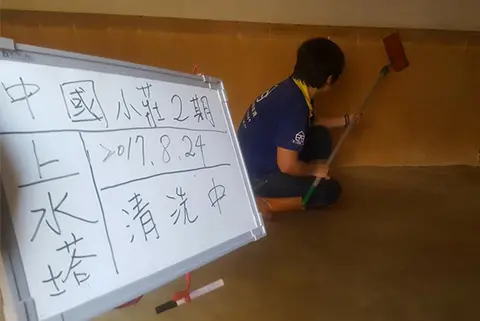 中國小莊2期
上水塔
2017.8.24
清洗中